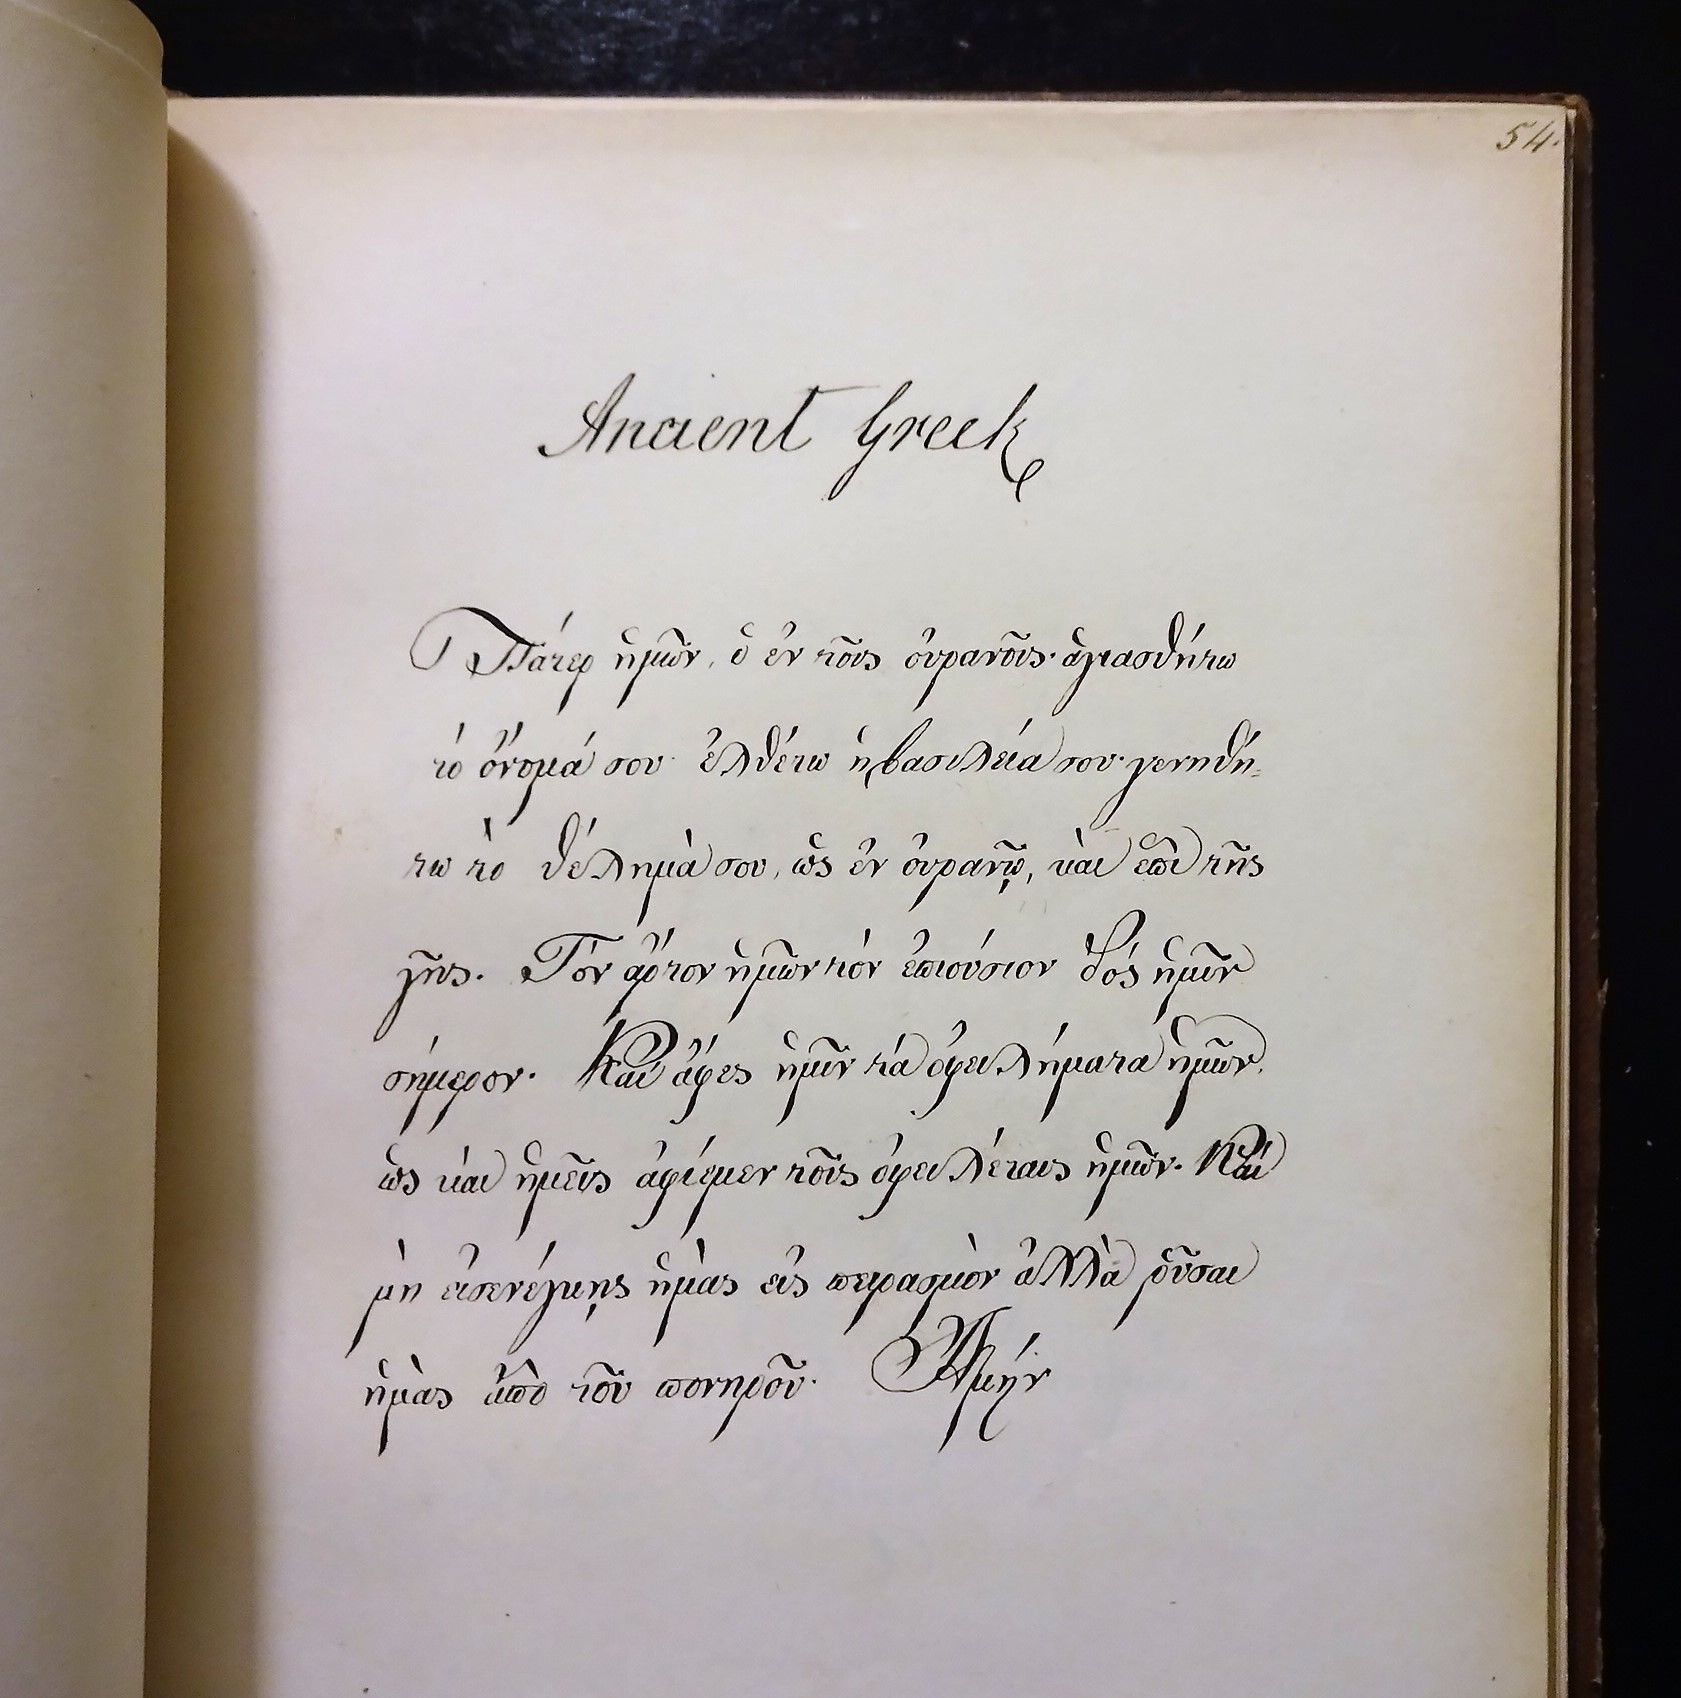 54.
Ancient Greek
Πάτερ ἡμῶν, ὁ ἐν τοῖς ὀυρανοῖς· ἁγιασθήτω
τό ὄνομά σου· ἐλθέτω ἡ βασιλεία σου· γενηθή=
τω τὸ θέλημὰ σου, ὡς ἐν ὀυρανῷ, κὰι ἐπὶ τῆς
γῆς. Τόν ἄρτον ἡμῶν τόν ἐπιούσιον δός ἡμῖν
σήμερον. Καί ἄφες ἡμῖν τά ὀφειλήματα ἡμῶν,
ὡς κάι ἡμεῖς ἀφίεμεν τοῖς ὀφειλέταις ἡμῶν. Καί
μὴ εἰσενέγκῃς ἡμὰς εἰς πειρασμὸν ἀλλὰ ῥῦσαι
ἡμὰς ἀπὸ τοῦ πονηροῦ. Ἀμήν